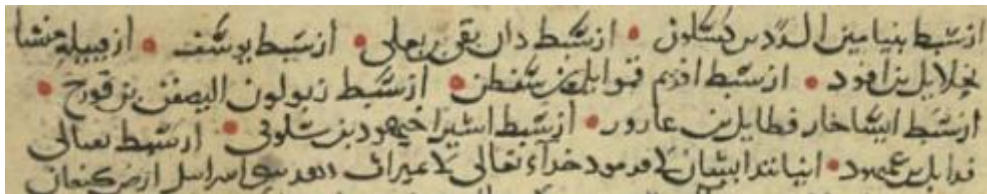 از سبط بنیامین الددس کسلون • از سبط دان بقی بن یعلی • از سبط یوسف • از قبیلهٔ منشا
خلایل بن افود • از سبط افریم قموایل بن سفطن • از سبط زبولون الیصفن بن فورح •
از سبط ایساخار فطایل بن عارور • از سبط اشیر اخیهود بن سلوفی • از سبط نفتالی
فدایل بن عمیهود • اینانند ایشان که فرمود خدآء تعالی که میراث دهد بنی اسراییل از زمین کنعان